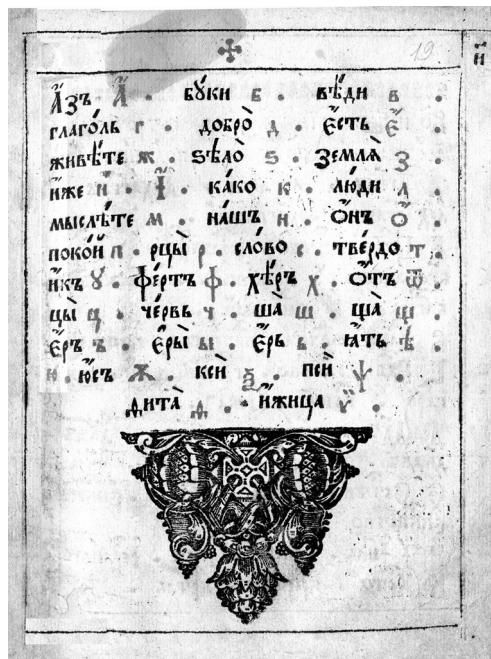 ✢ 19
и҆
А҆́зъ А҆́ . бꙋ́ки б . вѣ́ди в .
глаго́ль г . добро̀ д . є҆́сть є҆́ .
живѣ́те ж . ѕѣло̀ ѕ . землѧ̀ з .
и҆́же и҆̀ . І҆̀ . ка́ко к . лю́ди л .
мыслѣ́те м . на́шъ н . ѻ҆́нъ ѻ҆́ .
поко́й п . рцы̀ р . сло́во с . тве́рдо т .
и҆́къ ꙋ . фе́ртъ ф . хѣ́ръ х . ѻ҆́тъ ѿ .
цы̀ ц . че́рвь ч . ша̀ ш . ща̀ щ .
є҆́ръ ъ . є҆ры̀ ы . є҆́рь ь . ꙗ҆́ть ѣ .
ю . ю҆́съ ѫ . ксѝ ѯ . псѝ ѱ .
дита̀ д . и҆́жица ѵ .